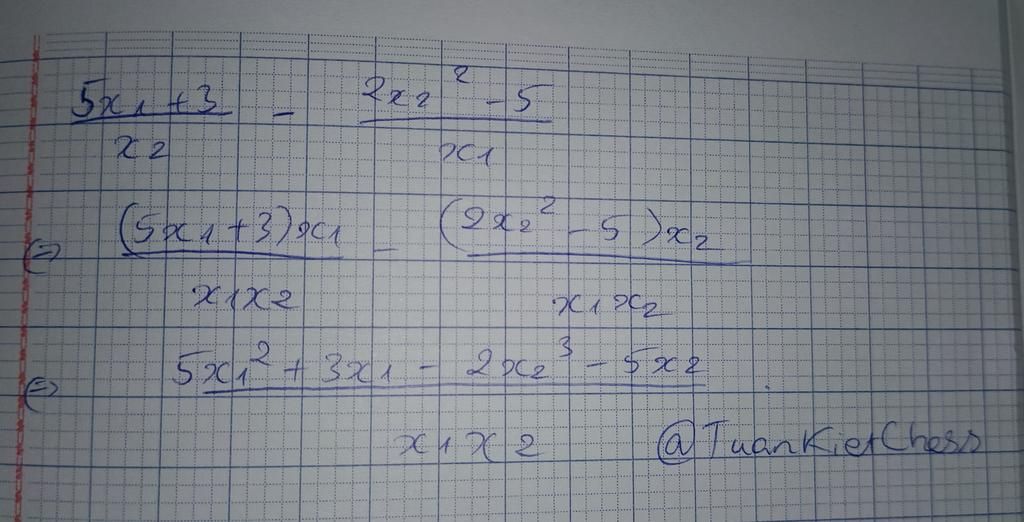 5x1 + 3 - 2x2² - 5
x2 x1
(=) (5x1 + 3)x1 - (2x2² - 5)x2
x1x2 x1x2
(=) 5x1² + 3x1 - 2x2³ - 5x2
x1x2 @TuanKietChess